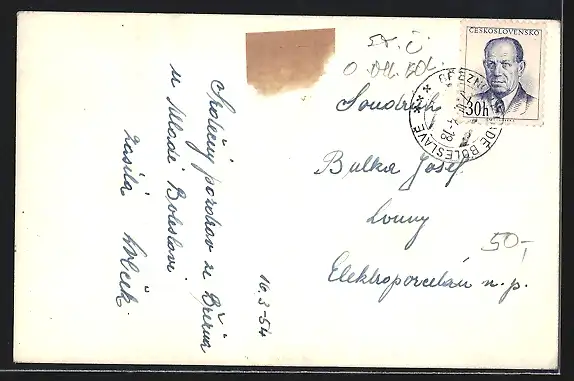 Srdečný pozdrav ze Března
u Mladé Boleslavi
zasílá Vlček
16.3-54
St. č.
O DLL BOL.
ČESKOSLOVENSKO
30h
BŘEZNO U MLADÉ BOLESLAVĚ
Soudruh
Bulka Josef
Louny
Elektroporcelán n.p.
50,-